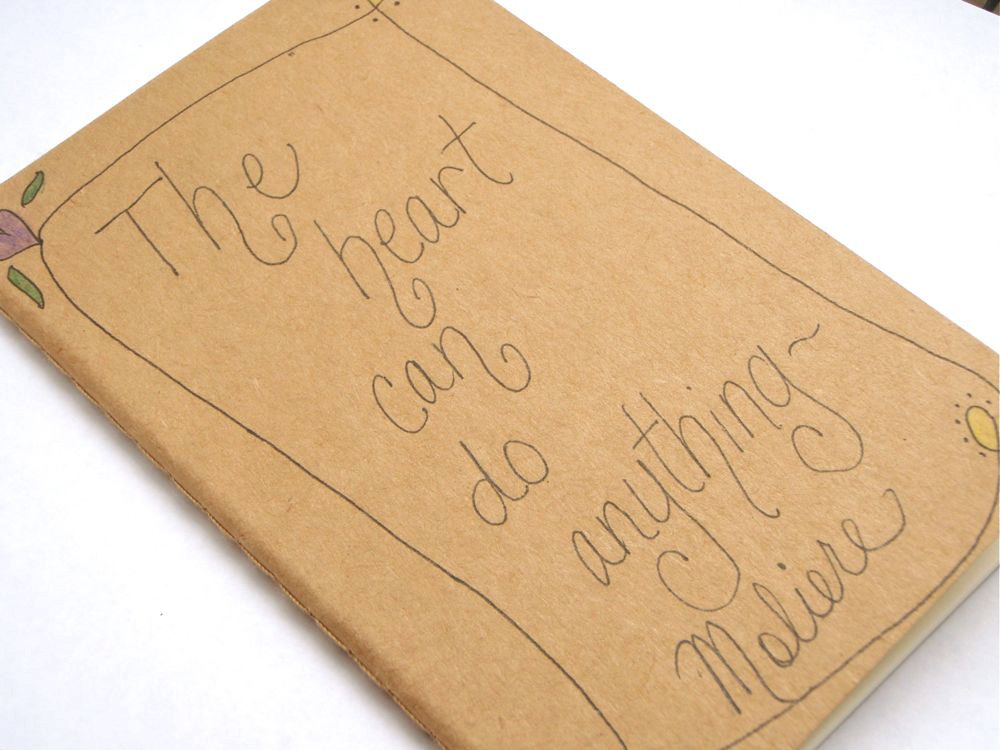 The
heart
can
do
anything~
Moliere